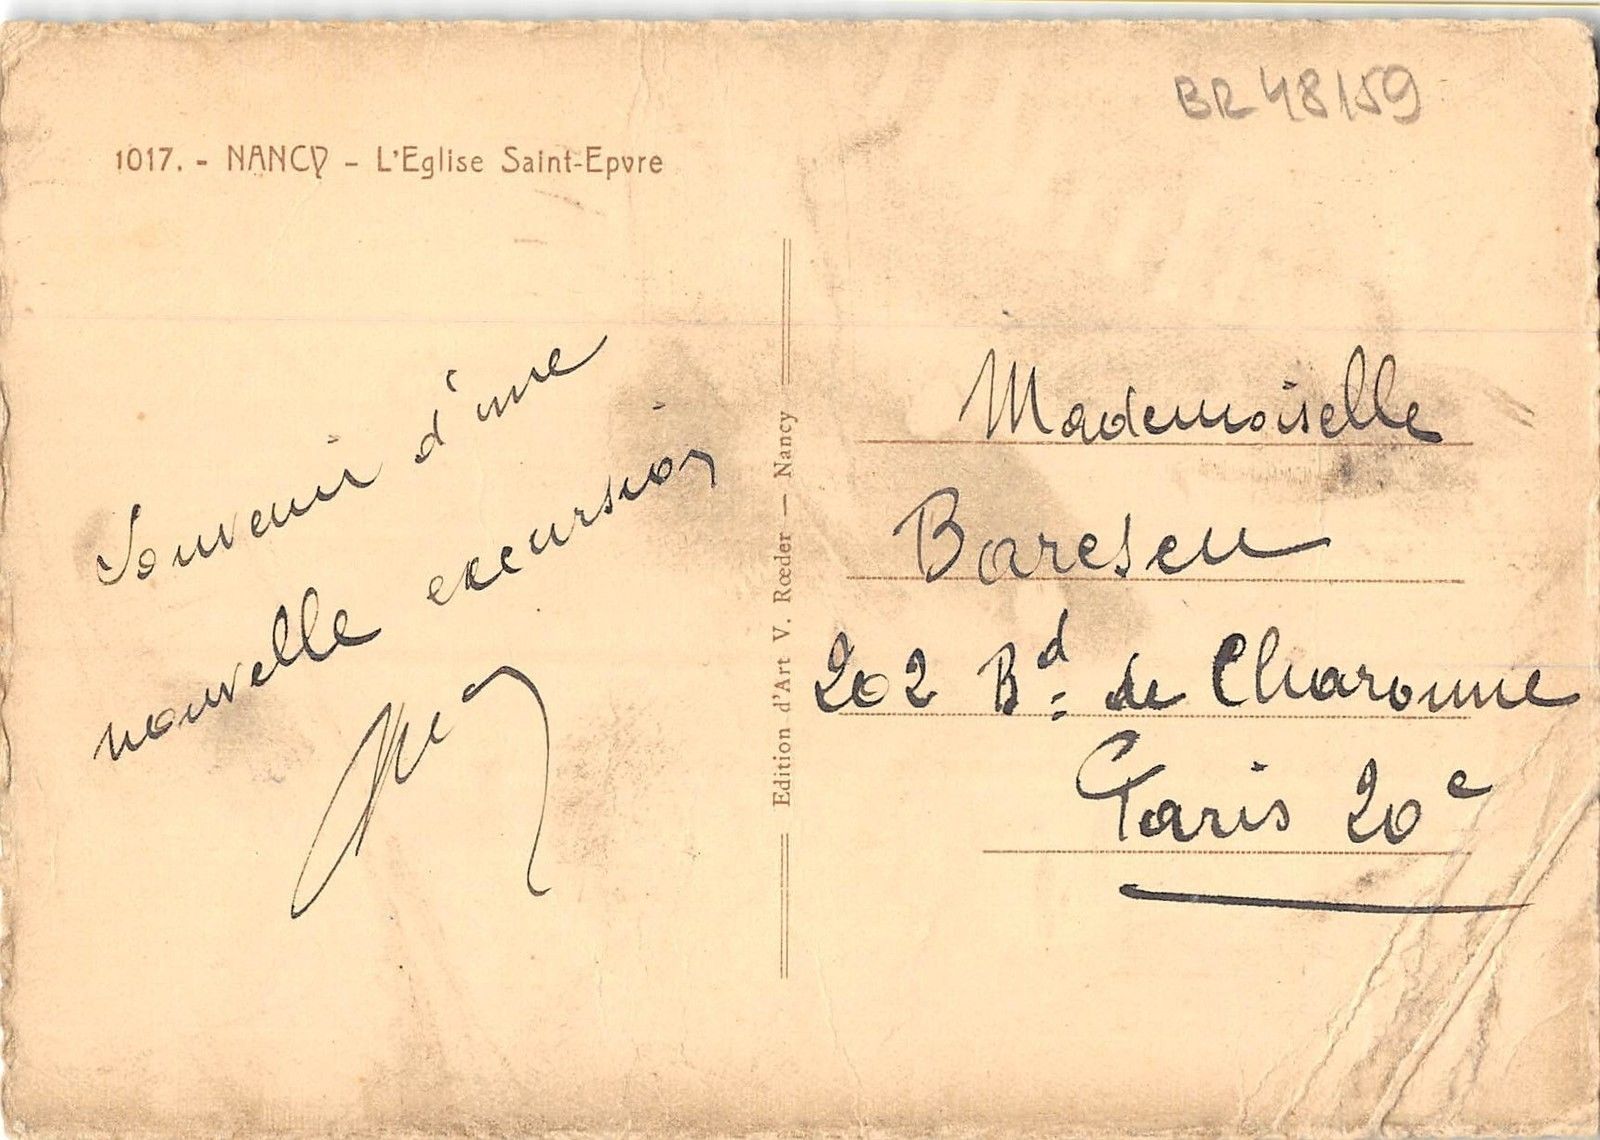 BR 48159
1017. - NANCY - L'Eglise Saint-Epvre
Souvenir d'une
nouvelle excursion
Edition d'Art V. Rœder — Nancy
Mademoiselle
Barescu
202 Bd de Charonne
Paris 20e